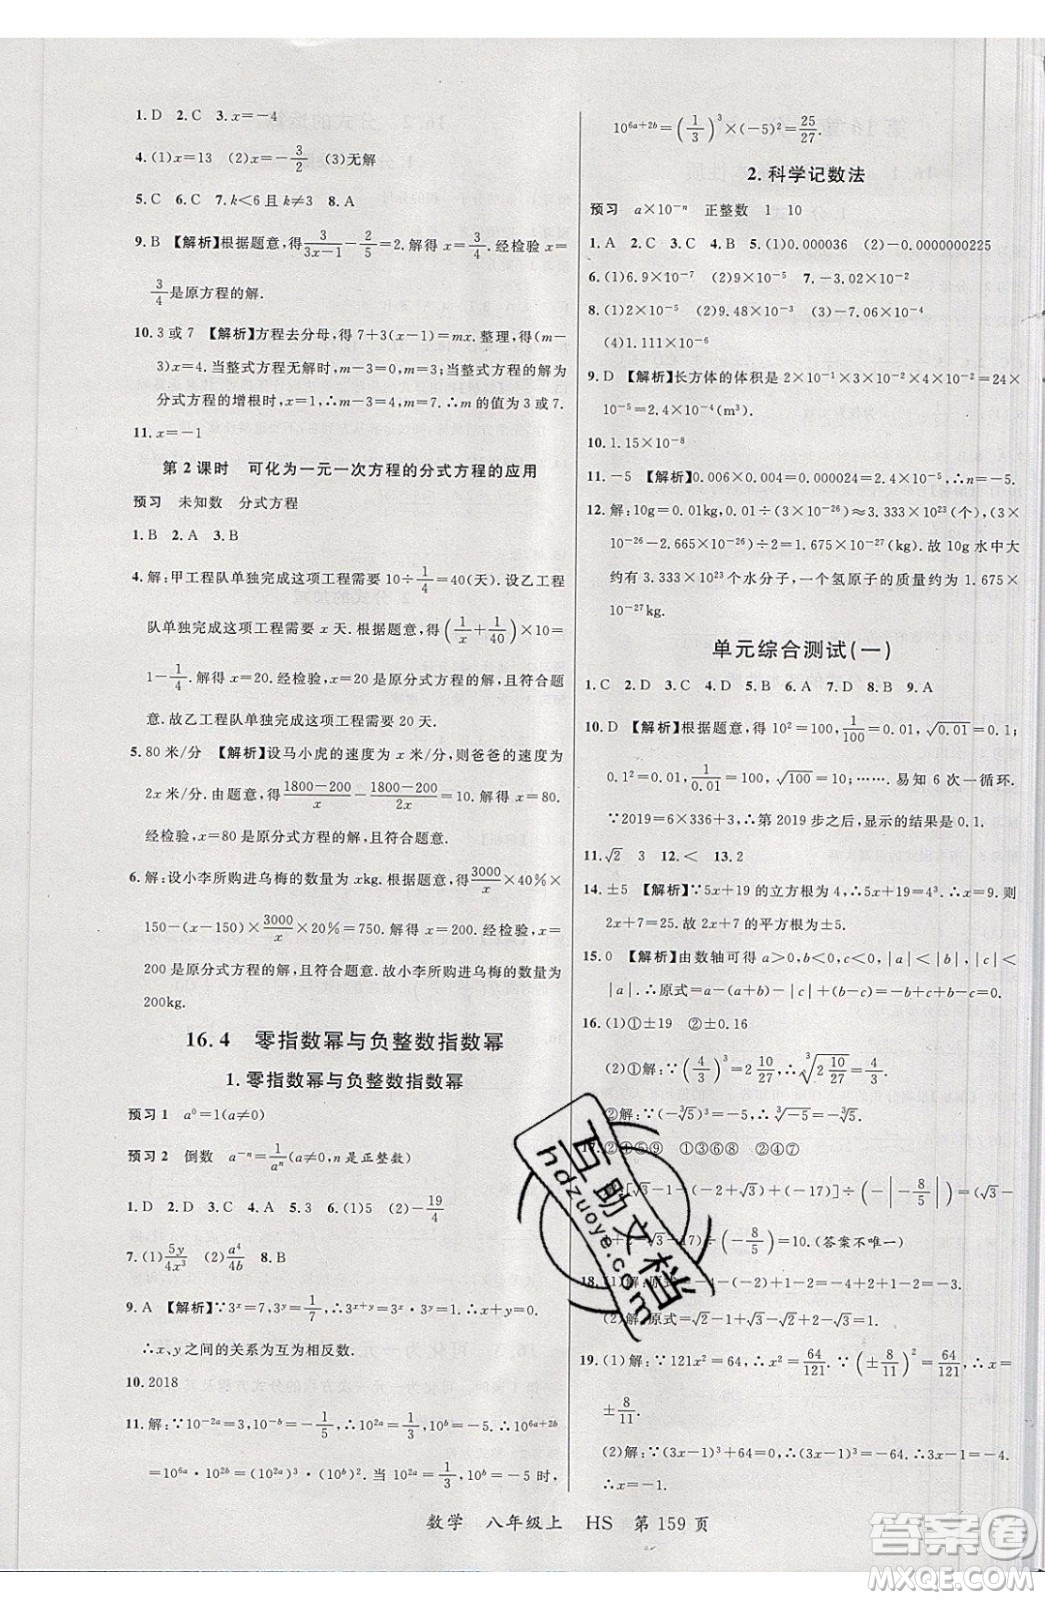 1.D 2.C 3.x=-4
4.(1)x=13 (2)x=-3/2 (3)无解
5.C 6.C 7.k<6且k≠3 8.A
9.B 【解析】根据题意,得3/(3x-1)-2/5=2.解得x=3/4.经检验x=
3/4是原方程的解.
10.3或7 【解析】方程去分母,得7+3(x-1)=mx.整理,得(m-
3)x=4.当整式方程无解时,m-3=0,m=3;当整式方程的解为
分式方程的增根时,x=1,∴m-3=4,m=7.∴m的值为3或7.
11.x=-1
第2课时 可化为一元一次方程的分式方程的应用
预习 未知数 分式方程
1.B 2.A 3.B
4.解:甲工程队单独完成这项工程需要10÷1/4=40(天).设乙工程
队单独完成这项工程需要x天.根据题意,得(1/x+1/40)×10=
1-1/4.解得x=20.经检验,x=20是原分式方程的解,且符合题
意.故乙工程队单独完成这项工程需要20天.
5.80米/分 【解析】设马小虎的速度为x米/分,则爸爸的速度为
2x米/分.由题意,得(1800-200)/x-(1800-200)/2x=10.解得x=80.
经检验,x=80是原分式方程的解,且符合题意.
6.解:设小李所购进乌梅的数量为xkg.根据题意,得3000/x×40%×
150-(x-150)×3000/x×20%=750.解得x=200.经检验,x=
200是原分式方程的解,且符合题意.故小李所购进乌梅的数量为
200kg.
16.4 零指数幂与负整数指数幂
1.零指数幂与负整数指数幂
预习1 a⁰=1(a≠0)
预习2 倒数 a⁻ⁿ=1/aⁿ(a≠0,n是正整数)
1.D 2.D 3.D 4.A 5.3 6.(1)5 (2)-19/4
7.(1)5y/4x³ (2)a⁴/4b 8.B
9.A 【解析】∵3ˣ=7,3ʸ=1/7,∴3ˣ⁺ʸ=3ˣ·3ʸ=1=3⁰.∴x+y=0.
∴x、y之间的关系为互为相反数.
10.2018
11.解:∵10⁻²ᵃ=3,10⁻ᵇ=-1/5,∴10²ᵃ=1/3,10ᵇ=-5.∴10⁶ᵃ⁺²ᵇ
=10⁶ᵃ·10²ᵇ=(10²ᵃ)³·(10ᵇ)².当10²ᵃ=1/3,10ᵇ=-5时,
10⁶ᵃ⁺²ᵇ=(1/3)³×(-5)²=25/27.
2.科学记数法
预习 a×10⁻ⁿ 正整数 1 10
1.A 2.C 3.C 4.C 5.(1)0.000036 (2)-0.0000000225
6.(1)6.9×10⁻⁷ (2)9×10⁻⁵ 7.-3.02×10⁻²
8.(1)2×10⁻⁵ (2)9×10⁻⁵ (3)-7.06×10⁻⁴
(4)1.118×10⁻⁷
9.D 【解析】长方体的体积是2×10⁻¹×3×10⁻²×4×10⁻²=24×
10⁻⁵=2.4×10⁻⁴(m³).
10.1.15×10⁻⁸
11.-5 【解析】0.006×0.004=0.000024=2.4×10⁻⁵,∴n=-5.
12.解:10g=0.01kg,0.01÷(3×10⁻²⁶)≈3.333×10²³(个),(3×
10⁻²⁶-2.665×10⁻²⁶)÷2=1.675×10⁻²⁷(kg).故10g水中大
约有3.333×10²³个水分子,一个氢原子的质量约为1.675×
10⁻²⁷kg.
单元综合测试(一)
1.C 2.D 3.C 4.D 5.B 6.A 7.D 8.B 9.A
10.D 【解析】根据题意,得10²=100,1/100=0.01,√0.01=0.1;
0.1²=0.01,1/0.01=100,√100=10;…….易知6次一循环.
∵2019=6×336+3,∴第2019步之后,显示的结果是0.1.
11.√2 3 12.< 13.2
14.±5 【解析】∵5x+19的立方根为4,∴5x+19=4³.∴x=9.则
2x+7=25.故2x+7的平方根为±5.
15.0 【解析】由数轴可得a>0,b<0,c<0,|a|<|b|,|c|<
|a|.∴原式=a-(a-b)-|c|+|b+c|=a-a+b+c-b-c=0.
16.(1)①±19 ②±0.16
(2)①解:∵(4/3)³=2 10/27,∴∛(2 10/27)=4/3.
②解:∵(-∛5)³=-5,∴∛-5=-∛5.
17.②④⑤⑨ ①③⑥⑧ ②④⑦
[√3-1-(-2+√3)-(-2-1+√9)]÷(-|-8/5|)=(√3-
√3-2)÷(-8/5)=10.(答案不唯一)
18.(1)解:原式=-4-(-2)+1-2=-4+2+1-2=-3.
(2)解:原式=√2-1+√3-√2+2-√3=1.
19.(1)解:∵121x²=64,∴x²=64/121.∵(±8/11)²=64/121,∴x=
±8/11.
(2)解:∵(3x-1)³+64=0,∴(3x-1)³=-64.∴3x-1=-4.
∴x=-1.
数学 八年级上 HS 第159页
互助文档
hdzuoye.com
答案圈
MXQE.COM